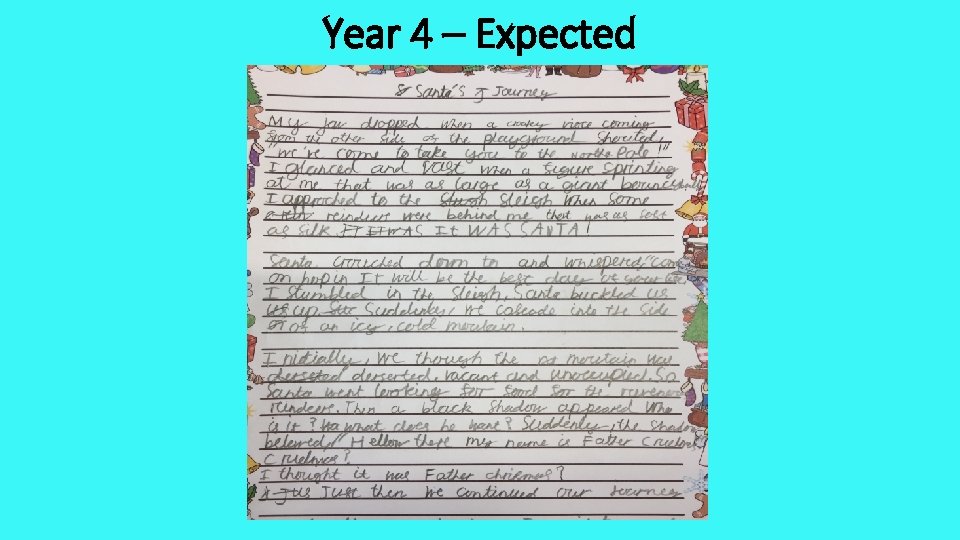 Year 4 – Expected
Santa's Journey
My jaw dropped when a croaky voice coming
from the other side of the playground shouted,
"we've come to take you to the North Pole!"
I glanced and when a figure sprinting
at me that was as large as a giant
I approched to the sleigh when some
reindeer were behind me that was as soft
as silk. It WAS SANTA!
Santa crouched down to and whispered, "come
on hop in It will be the best
I stumbled in the sleigh, Santa buckled us
up Suddenly, we cascade into the side
of an icy, cold
Initially, we though the was
derserted, vacant and unoccupied. So
Santa went looking for food for the
Then a black shadow appeared Who
is it? what does he want? Suddenly, the shadow
" Hellow there my name is Father
I thought it was Father
Just then we continued our Journey